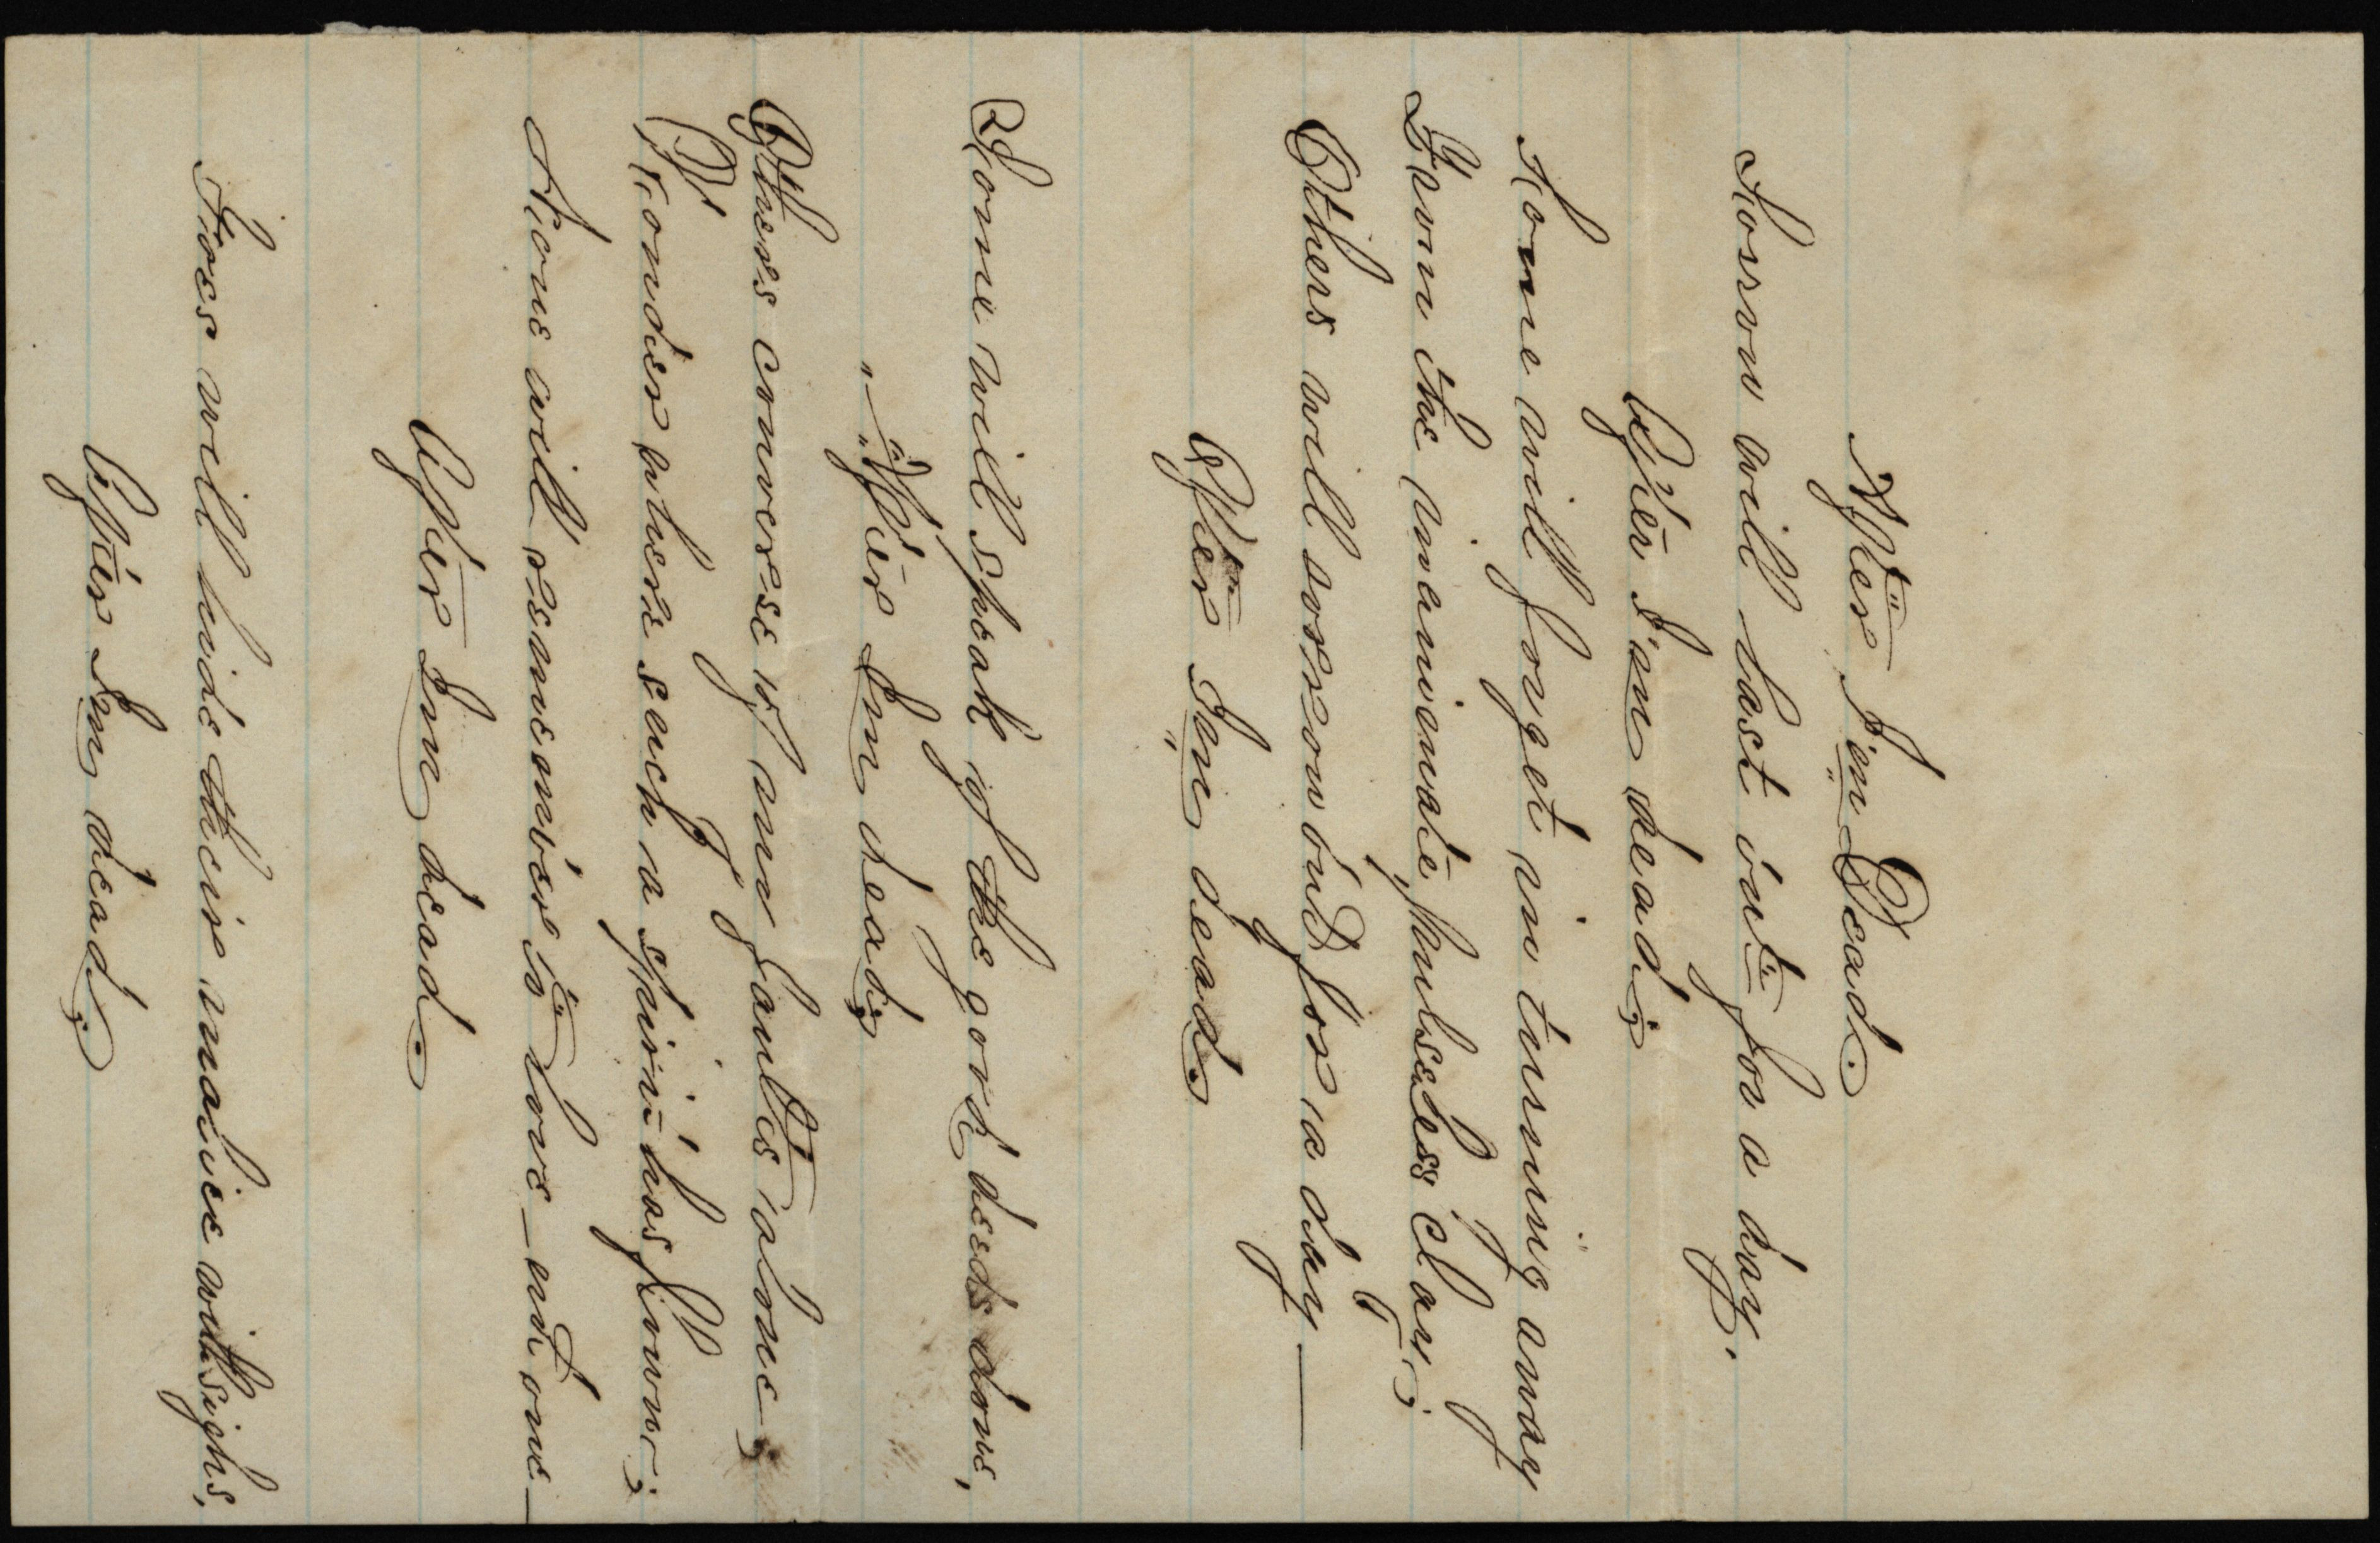 After I'm Dead.
Sorrow will last but for a day,
After I'm dead;
Some will forget in turning away
From the inanimate, pulseless clay;
Others will sorrow but for a day—
After I'm dead.
Some will speak of the good deeds done,
After I'm dead;
Others converse of my faults alone;
Wonder where such a spirit has flown;
None will remember to love—not one—
After I'm dead.
Foes will hide their malice with sighs,
After I'm dead;